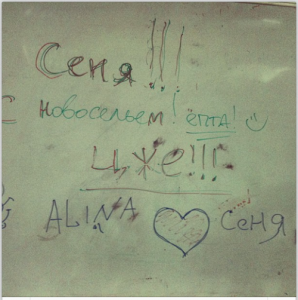 Сеня!!!
новосельем! ёпта!
уже!!!
ALINA ♡ Сеня